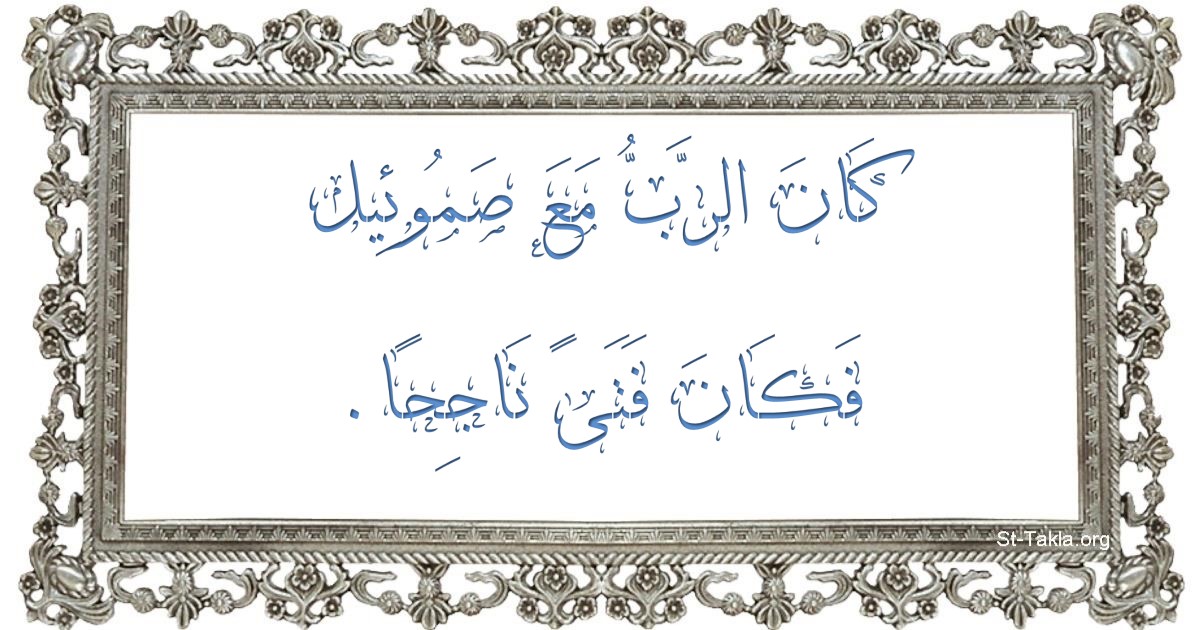 كَانَ الرَّبُّ مَعَ صَمُوئِيل
فَكَانَ فَتَىً نَاجِحًا .
St-Takla.org